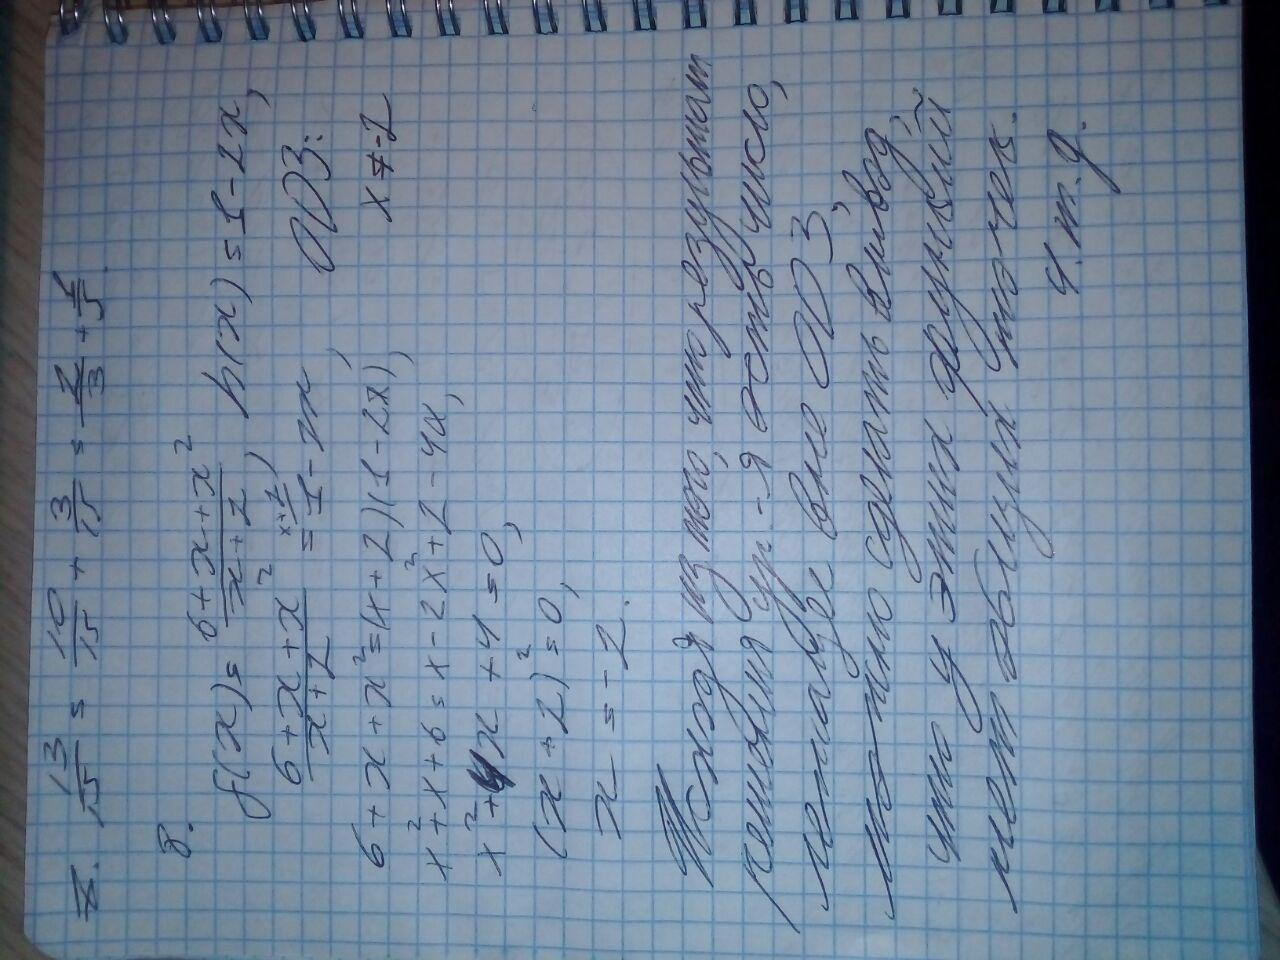 7. 13/15 = 10/15 + 3/15 = 2/3 + 1/5.
8.
f(x) = (6+x+x²)/(x+2), h(x) = 1-2x,
(6+x+x²)/(x+2) = 1-2x, ОДЗ:
6+x+x²=(x+2)(1-2x), x≠-2
x²+x+6=x-2x²+2-4x,
x²+4x+4=0,
(x+2)²=0,
x=-2.
Исходя из того, что результат
решения ур-я есть число,
лежащее вне ОДЗ,
можно сделать вывод,
что у этих функций
нет общих точек.
ч.т.д.